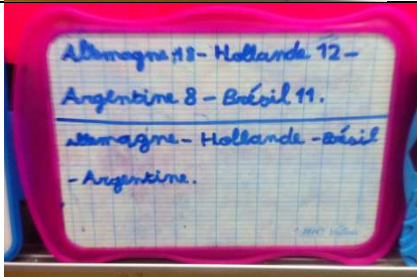 Allemagne 18 - Hollande 12 -
Argentine 8 - Brésil 11.
Allemagne - Hollande - Brésil
- Argentine.